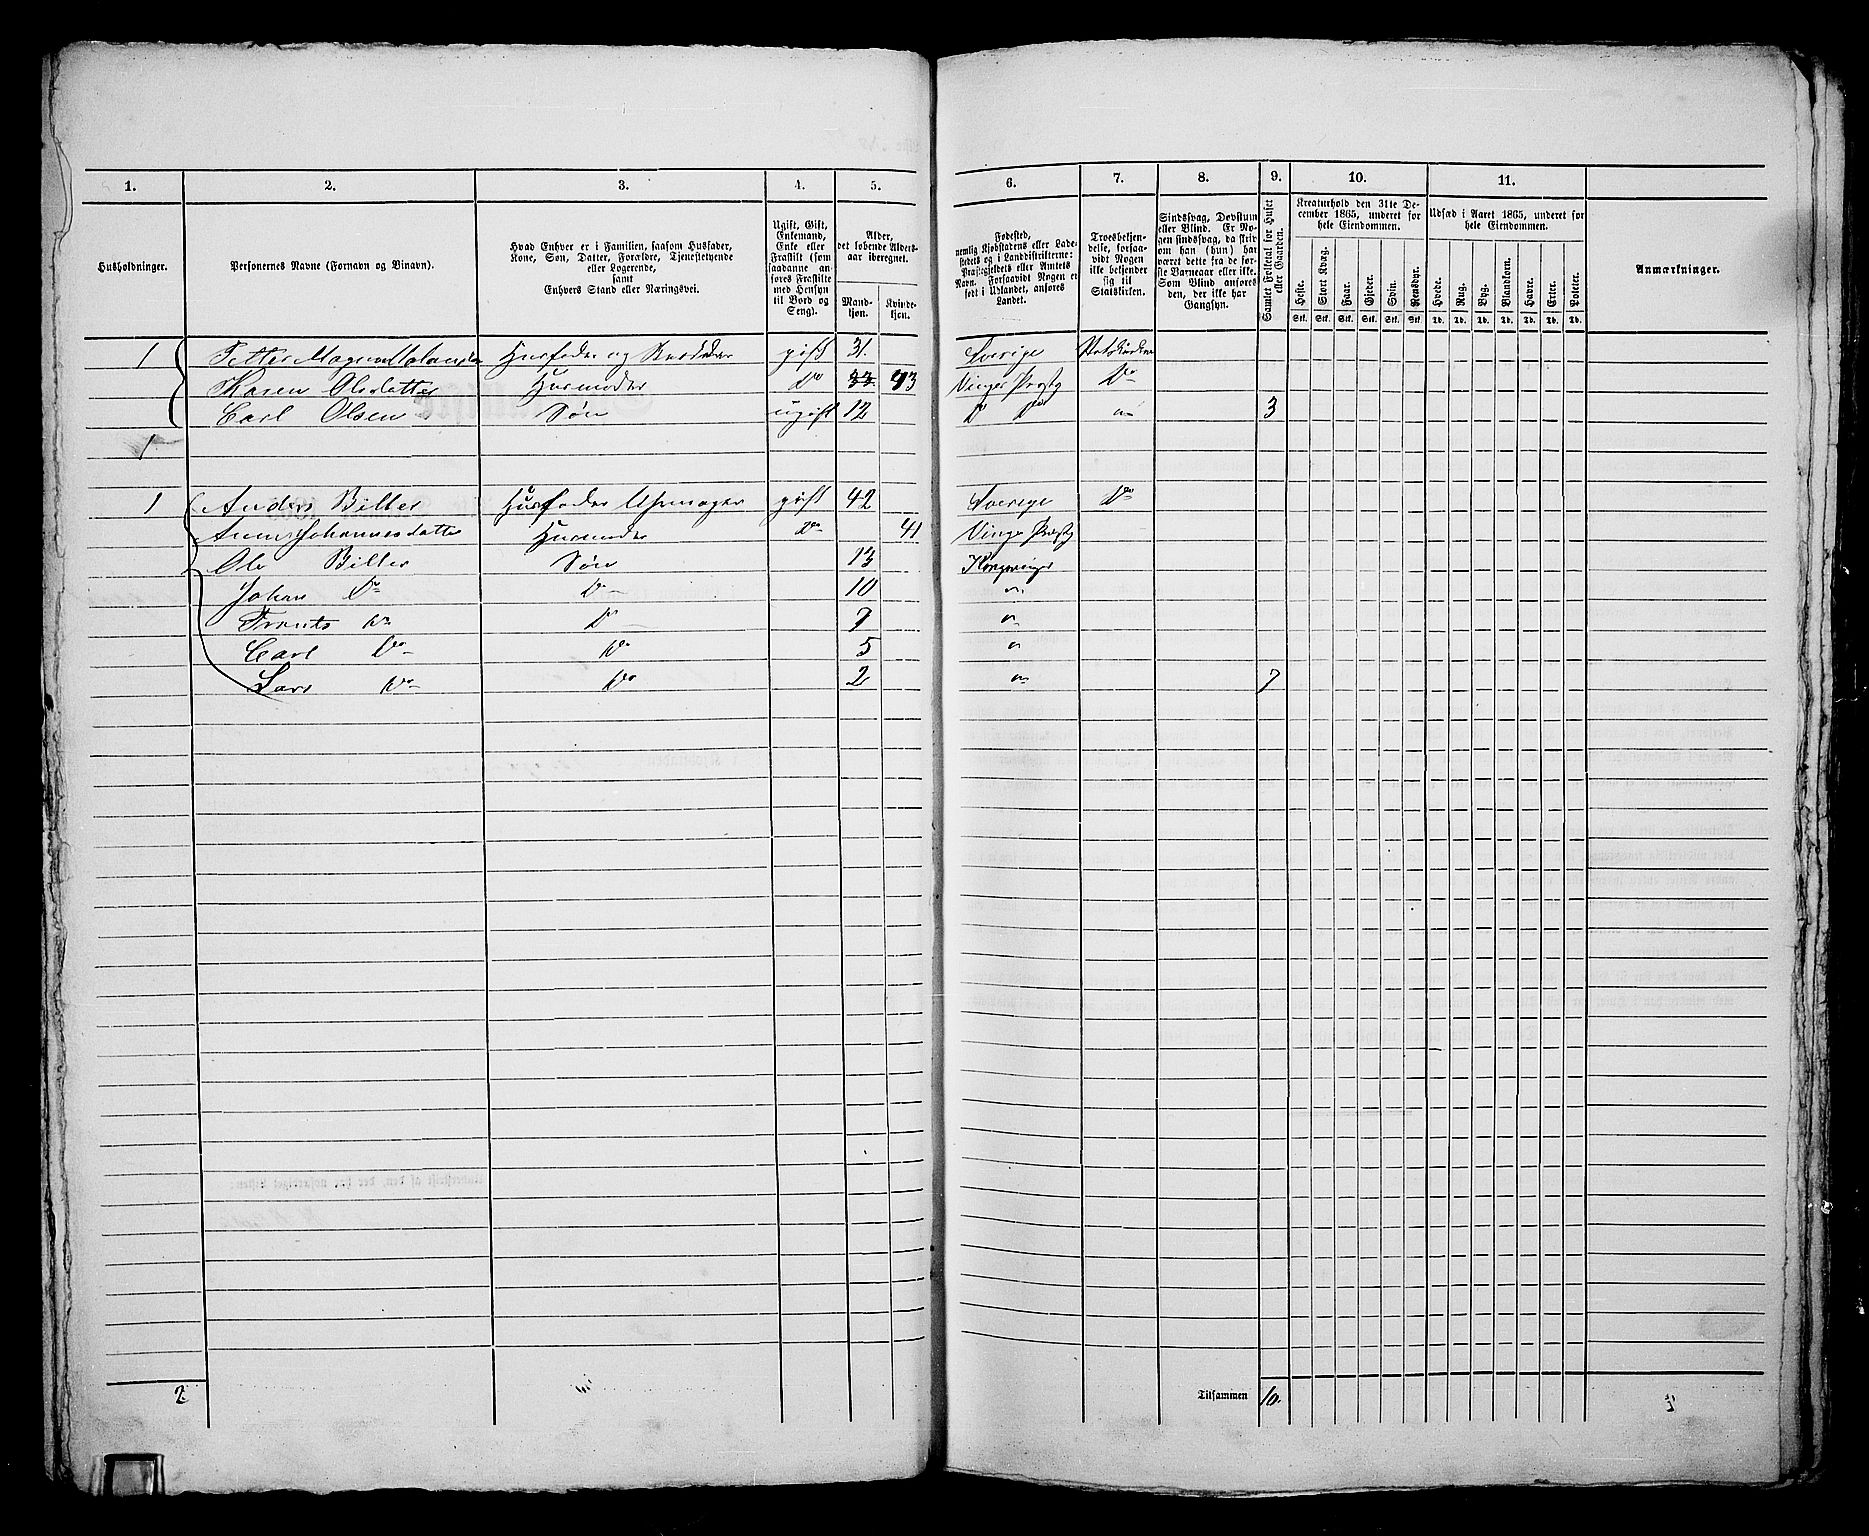 1. 2. 3. 4. 5. 6. 7. 8. 9. 10. 11.
Husholdninger.
Personernes Navne (Fornavn og Vinavn).
Hvad Enhver er i Familien, saasom Husfader,
Kone, Søn, Datter, Forældre, Tjenestetyende
eller Logerende,
samt
Enhvers Stand eller Næringsvei.
Ugift, Gift,
Enkemand,
Enke eller
Fraskilt (som
saadanne an-
føres Fraskilte
med Hensyn
til Bord og
Seng).
Alder,
det løbende Alders-
aar iberegnet.
Mand-
kjøn.
Kvinde-
kjøn.
Fødested,
nemlig Kjøbstadens eller Lade-
stedets og i Landdistrikterne:
Præstegjeldets eller Amtets
Navn. Forsaavidt Nogen er
født i Udlandet, anføres
Landet.
Troesbekjen-
delse, forsaa-
vidt Nogen
ikke bekjender
sig til
Statskirken.
Sindssvag, Døvstum
eller Blind. Er No-
gen sindssvag, da skriv
om han (hun) har
været dette fra de før-
ste Barneaar eller ikke.
Som Blind anføres
den, der ikke har
Gangsyn.
Samlet Folketal for Huset
eller Gaarden.
Kreaturhold den 31te De-
cember 1865, underet for
hele Eiendommen.
Heste. Stort Kvæg. Faar. Gjeder. Svin. Rensdyr.
Stk. Stk. Stk. Stk. Stk. Stk.
Udsæd i Aaret 1865, underet for
hele Eiendommen.
Hvede. Rug. Byg. Blandkorn. Havre. Erter. Poteter.
Td. Td. Td. Td. Td. Td. Td.
Anmærkninger.
1 Petter Magnus Husfader og gift 31. Sverige Statskirken
Karen Olsdatter Husmoder Do 33 43 Vinger Præstg Do
Carl Olsen Søn ugift 12 D Do 3
1
1 Anders Biller Husfader Uhrmager gift 42 Sverige Do
Anne Johannesdatter Husmoder Do 41 Vinger Præstg
Ole Biller Søn 13 Kongsvinger
Johan Do Do 10 "
Frants Do D 7 "
Carl Do Do 5 "
Lars Do Do 2 " 7
2 Tilsammen 10.